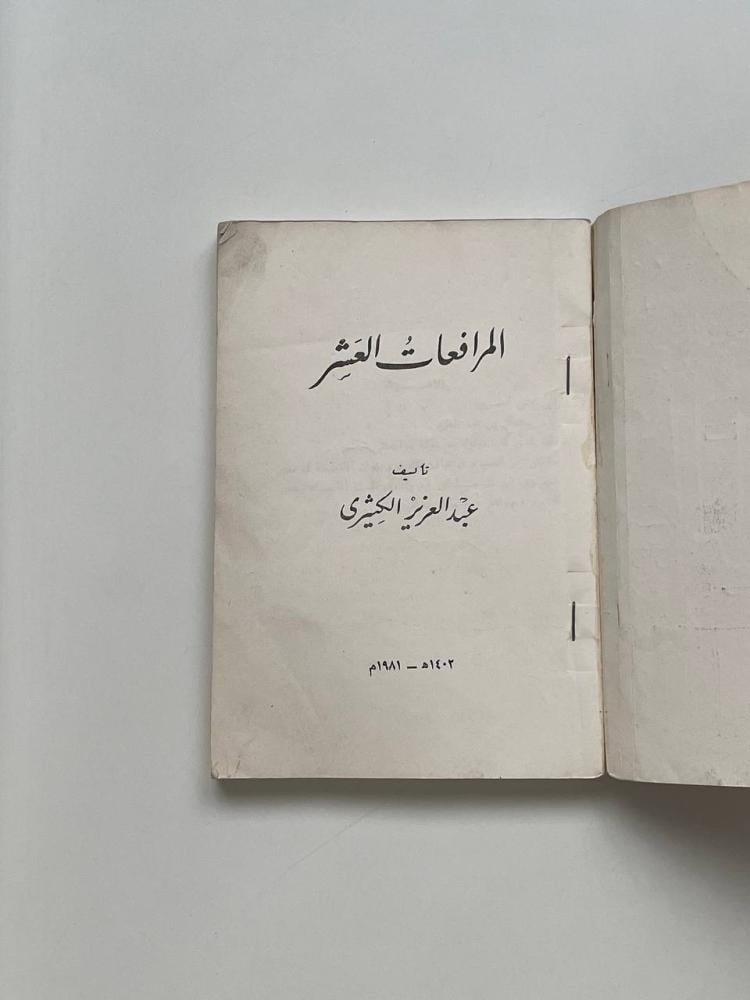 المرافعاتُ العَشِر
تأليف
عبْد العزيزْ الكِثِيرى
١٤٠٢ه – ١٩٨١م